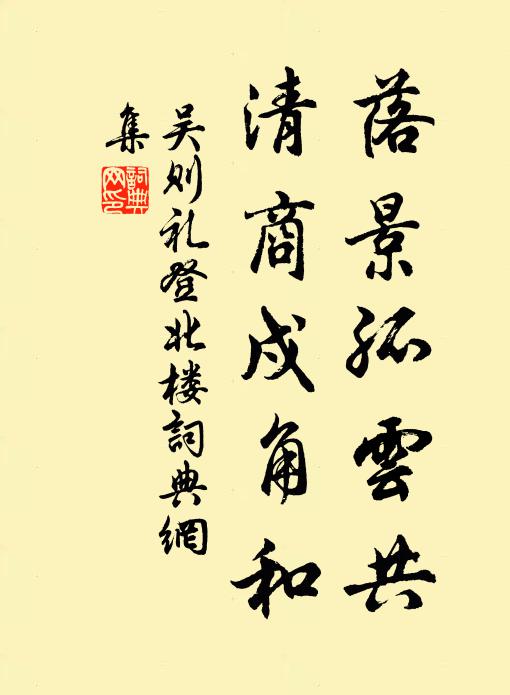 落景孤雲共
清商戍角和
吴则礼登北楼詞典網
集
詞典網印